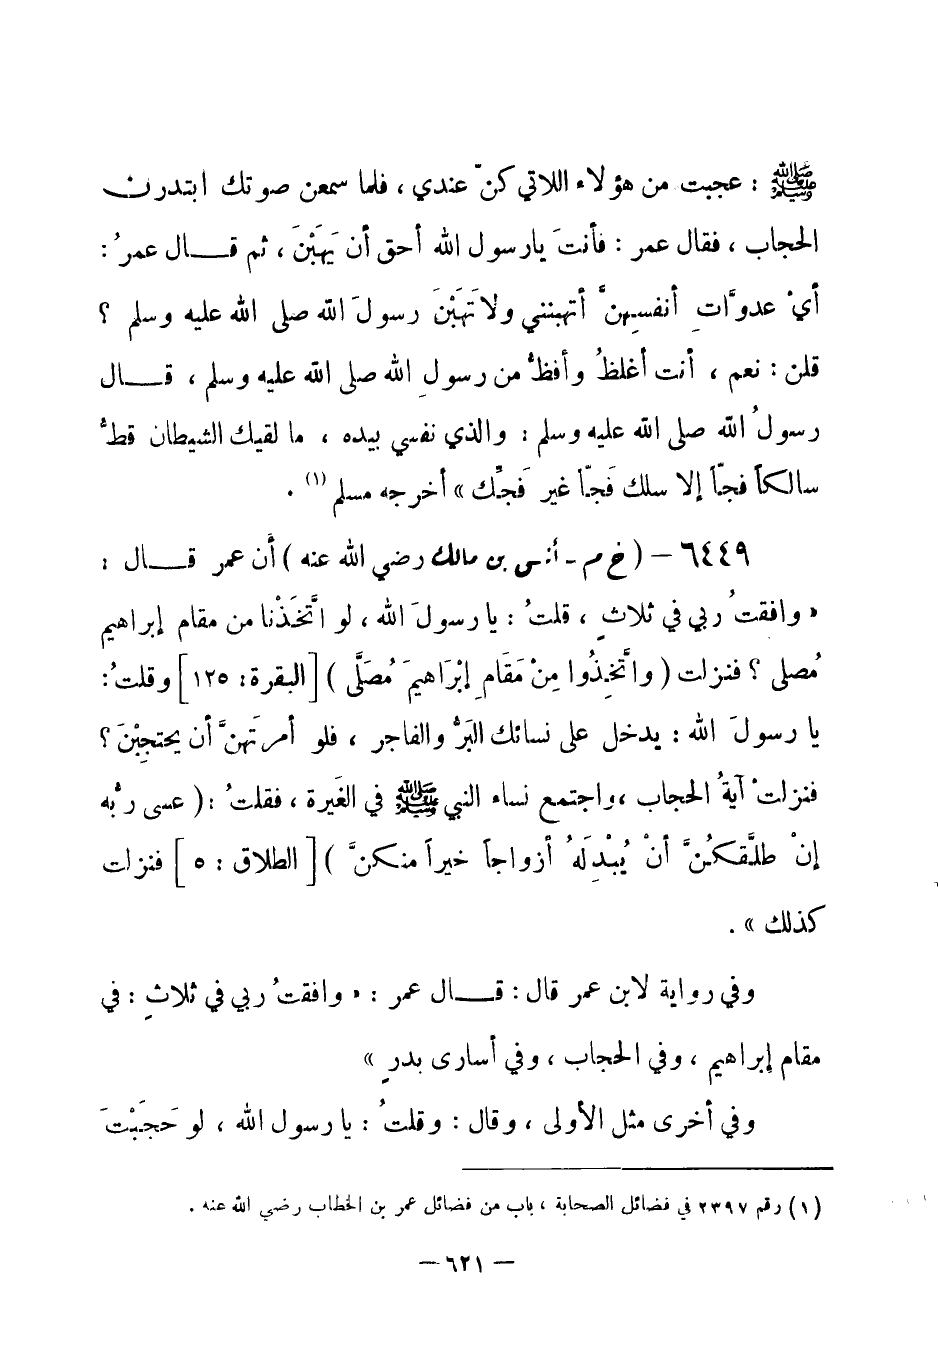 ﷺ : عجبت من هؤلاء اللاتي كنّ عندي ، فلما سمعن صوتك ابتدرن
الحجاب ، فقال عمر : فأنتَ يارسول الله أحق أن يَهَبْنَ ، ثم قـــال عمرُ :
أيْ عدوَّاتِ أنفسِهنَّ أتهبنني ولا تَهَبْنَ رسولَ الله صلى الله عليه وسلم ؟
قلن : نعم ، أنت أغلظُ وأفظُّ من رسولِ الله صلى الله عليه وسلم ، قـــال
رسولُ الله صلى الله عليه وسلم : والذي نفسي بيده ، ما لقيك الشيطان قطُّ
سالكاً فجّاً إلا سلك فَجّاً غير فَجِّك » أخرجه مسلم (١) .
٦٤٤٩ – ( خ م - أنس بن مالك رضي الله عنه ) أن عمر قـــال :
« وافقتُ ربي في ثلاثٍ ، قلتُ : يا رسولَ الله ، لو اتَّخَذْنا من مقام إبراهيم
مُصلى ؟ فنزلت ( واتَّخِذُوا مِنْ مَقَامِ إبْرَاهيمَ مُصَلَّى ) [ البقرة : ١٢٥ ] وقلتُ :
يا رسولَ الله : يدخل على نسائك البَرُّ والفاجر ، فلو أمرتَهنَّ أن يحتجِبْنَ ؟
فنزلتْ آيةُ الحجاب ، واجتمع نساء النبي ﷺ في الغَيرة ، فقلتُ : ( عسى ربُّه
إنْ طلَّقكُنَّ أنْ يُبْدِلَهُ أزواجاً خيراً منكنَّ ) [ الطلاق : ٥ ] فنزلت
كذلك » .
وفي رواية لابن عمر قال : قـــال عمر : « وافقتُ ربي في ثلاثٍ : في
مقام إبراهيم ، وفي الحجاب ، وفي أسارى بدرٍ »
وفي أخرى مثل الأولى ، وقال : وقلتُ : يا رسول الله ، لو حَجَبْتَ
(١) رقم ٢٣٩٧ في فضائل الصحابة ، باب من فضائل عمر بن الخطاب رضي الله عنه .
– ٦٢١ –